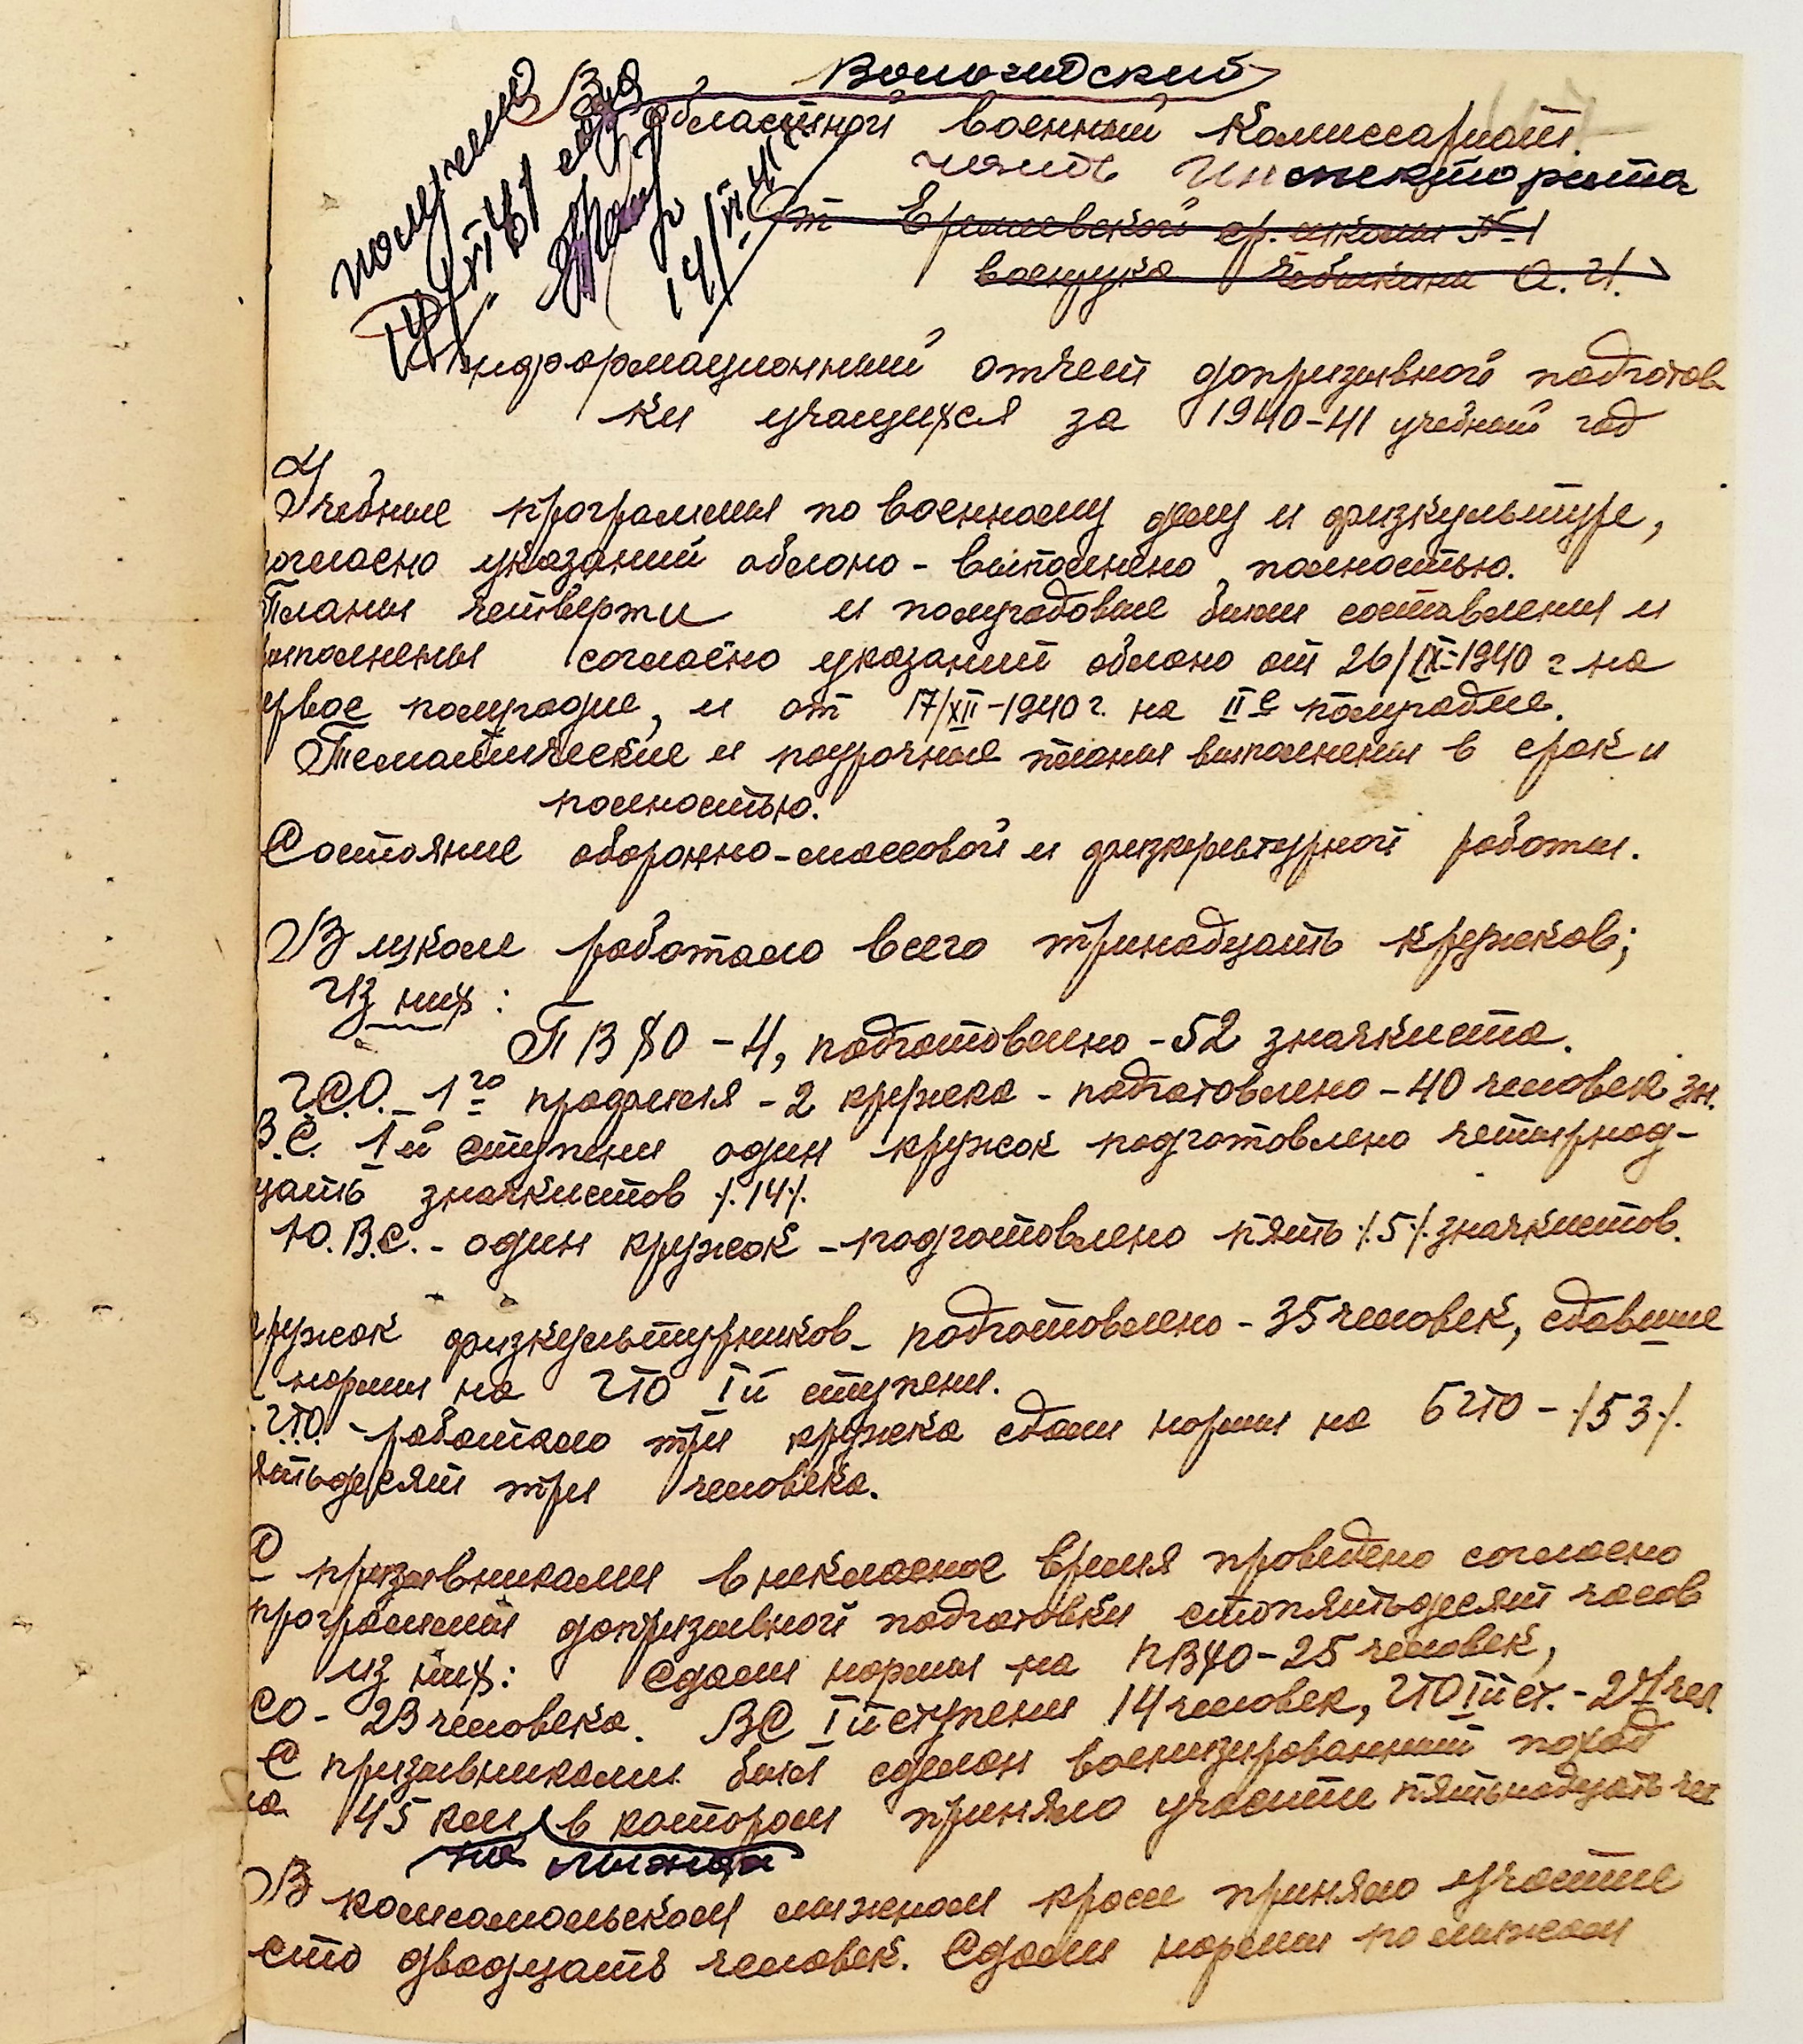 Вологодский
областной военный комиссариат.
часть Инспектората
От ср. школы № 1
военрука А. И.
получено
14/VI 41
14/VI 41
Информационный отчет допризывной подготов
ки учащихся за 1940-41 учебный год
Учебные программы по военному делу и физкультуре,
согласно указаний облоно - выполнено полностью.
Планы четверти и полугодовые были составлены и
выполнены согласно указаний облоно от 26/IX-1940 г на
первое полугодие, и от 17/XII-1940 г. на IIе полугодие.
Тематические и поурочные планы выполнены в срок и
полностью.
Состояние оборонно-массовой и физкультурной работы.
В школе работало всего тринадцать кружков;
Из них:
ПВХО - 4, подготовлено - 52 значкиста.
ГСО - 1го профиля - 2 кружка - подготовлено - 40 человек зн.
В.С. Iй ступени один кружок подготовлено четырнад-
цать значкистов /.14/.
Ю.В.С. - один кружок - подготовлено пять /.5/. значкистов.
кружок физкультурников - подготовлено - 35 человек, сдавшие
нормы на ГТО Iй ступени.
БГТО - работало три кружка сдали нормы на БГТО - /53/.
пятьдесят три человека.
С призывниками внеклассное время проведено согласно
программы допризывной подготовки стопятьдесят часов
из них: сдали нормы на ПВХО - 25 человек,
ГСО - 23 человека. ВС Iй ступени 14 человек, ГТО Iй ст. - 27 чел
С призывниками был сделан военизированный поход
на 45 км в котором приняло участие пятьнадцать чел
на лыжах
В комсомольском лыжном кроссе приняло участие
сто двадцать человек. Сдали нормы по лыжам